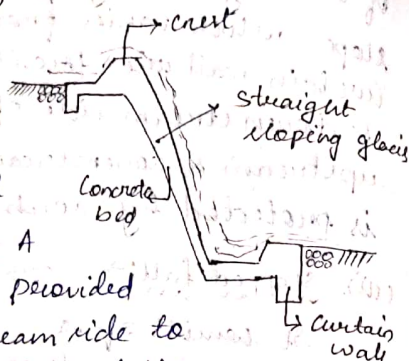 crest
straight
sloping glacis
Concrete
bed
A
perovided
eam side to
Curtain
wall